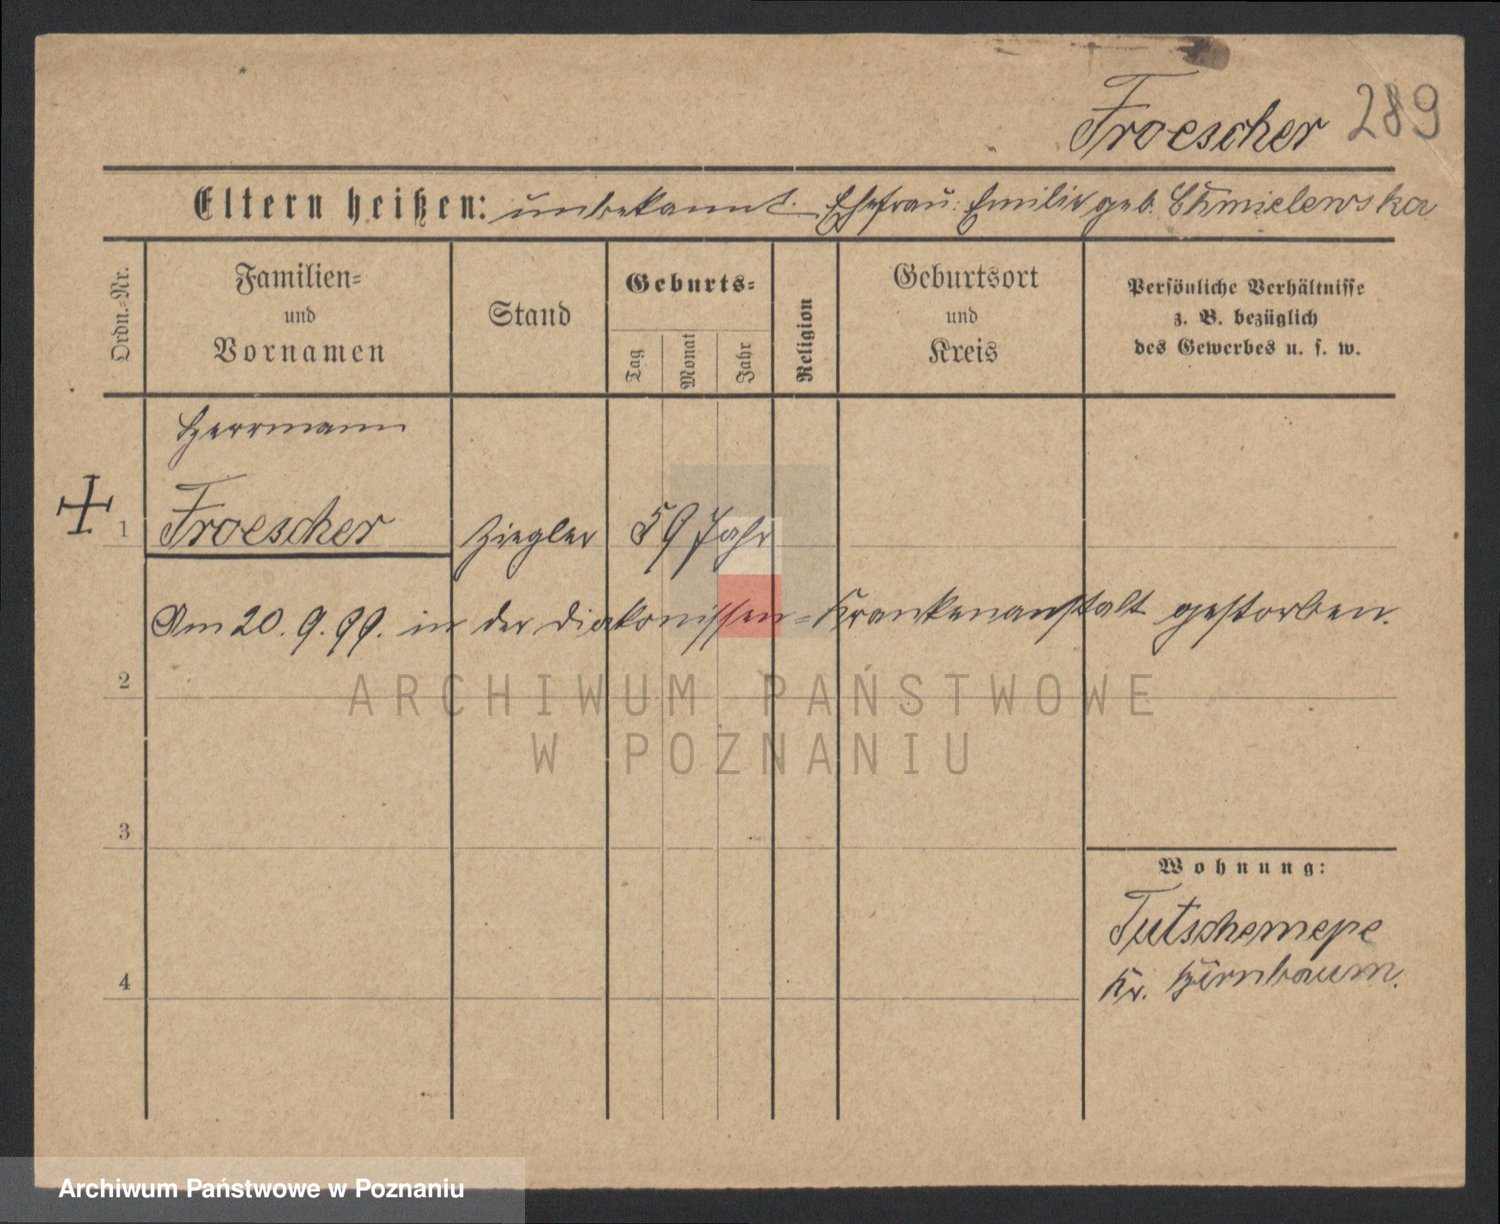 Froescher 289
Eltern heißen: unbekannt. Ehefrau: Emilie geb. Chmielewska
Ordn.-Nr.
Familien-
und
Vornamen
Stand
Geburts-
Tag
Monat
Jahr
Religion
Geburtsort
und
Kreis
Persönliche Verhältnisse
z. B. bezüglich
des Gewerbes u. s. w.
Herrmann
1 Froescher Ziegler 59 Jahr
Am 20. 9. 99. in der Diakonissen-Krankenanstalt gestorben.
2
ARCHIWUM PAŃSTWOWE
W POZNANIU
3
Wohnung:
Tutschemepe
4 Kr. Birnbaum.
Archiwum Państwowe w Poznaniu